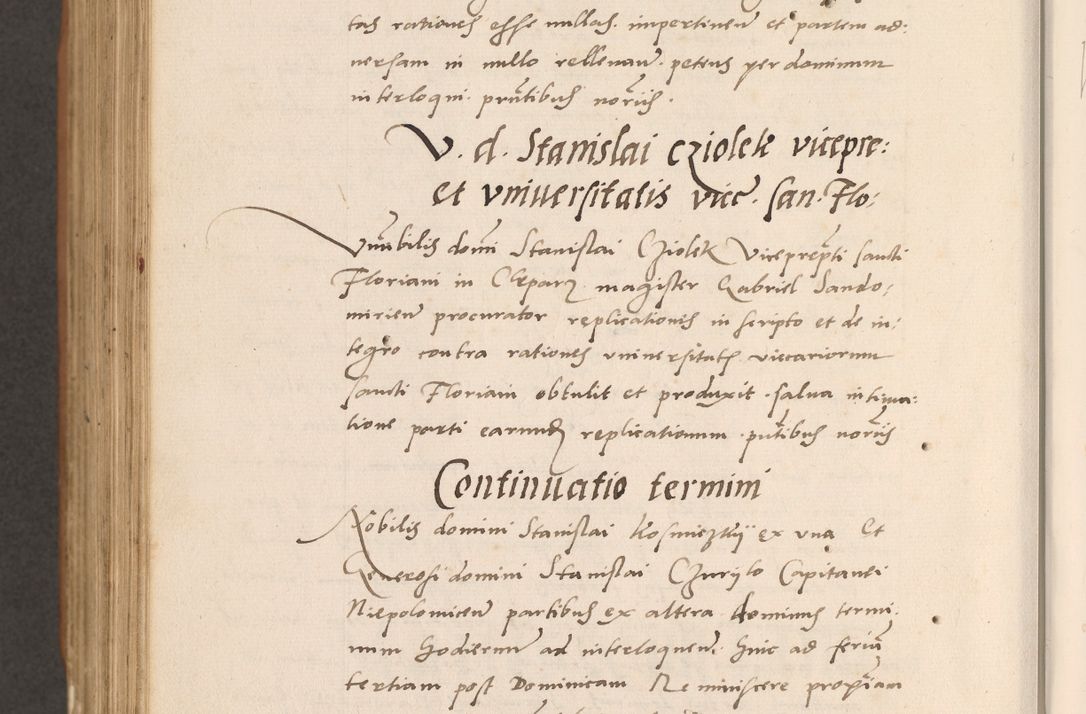 tas rationes esse nullas. impertinen̄ et partem ad:
versam in nullo relleuan̄. petens per dominum
interloqui. pn̄tibus norijs.
V. d. Stanislai cziolek vicepre:
et vniuersitatis vicc̄. san. Flo:
Vn̄bilis domi Stanislai Cziolek Viceprep̄ti sancti
Floriani in Cleparz magister Gabriel Sando:
mirien̄ procurator replicationis in scripto et de in:
tegro contra rationes vniuersitatis viccariorum
sancti Floriani obtulit et produxit. salua intima:
tione parti earumdem replicationum. pn̄tibus norijs
Continuatio termini
Nobilis domini Stanislai Kosmiczkij ex vna Et
Generosi domini Stanislai Czurylo Capitanei
Niepolomicen̄ partibus ex altera dominus termi:
num hodiernū ad interloquen̄. hinc ad feriā
tertiam post Dominicam Reminiscere proximam